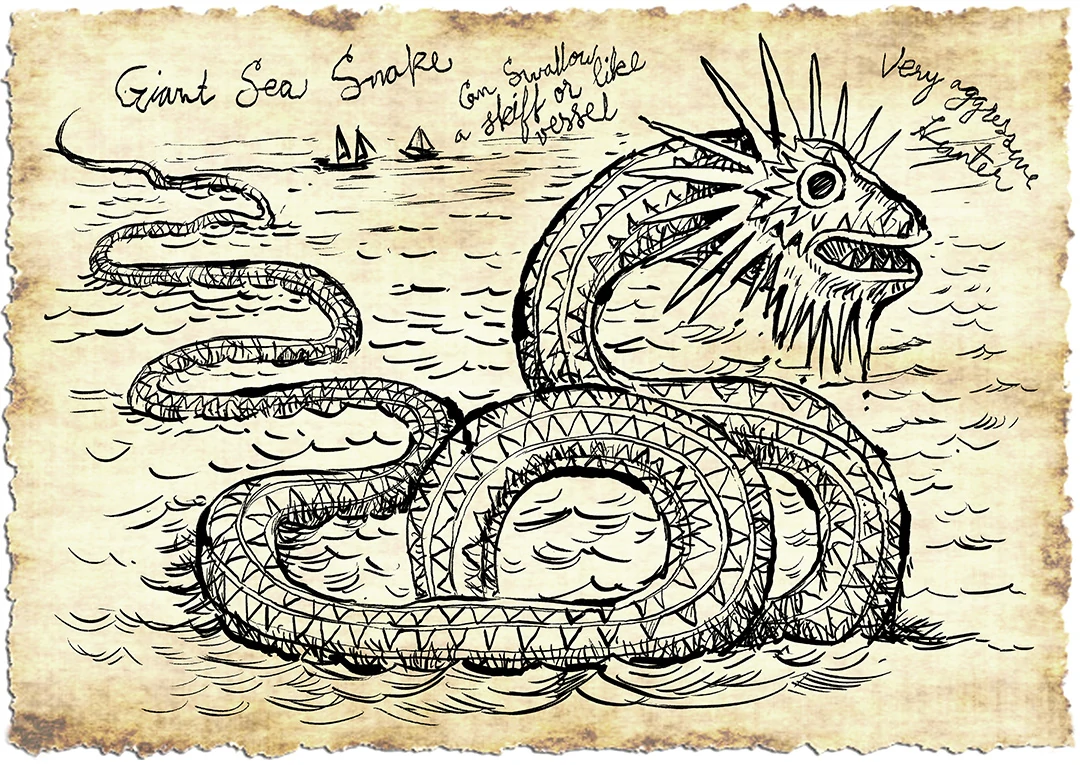 Giant Sea Snake
Can Swallow
a skiff or like
vessel
Very aggressive
Hunter